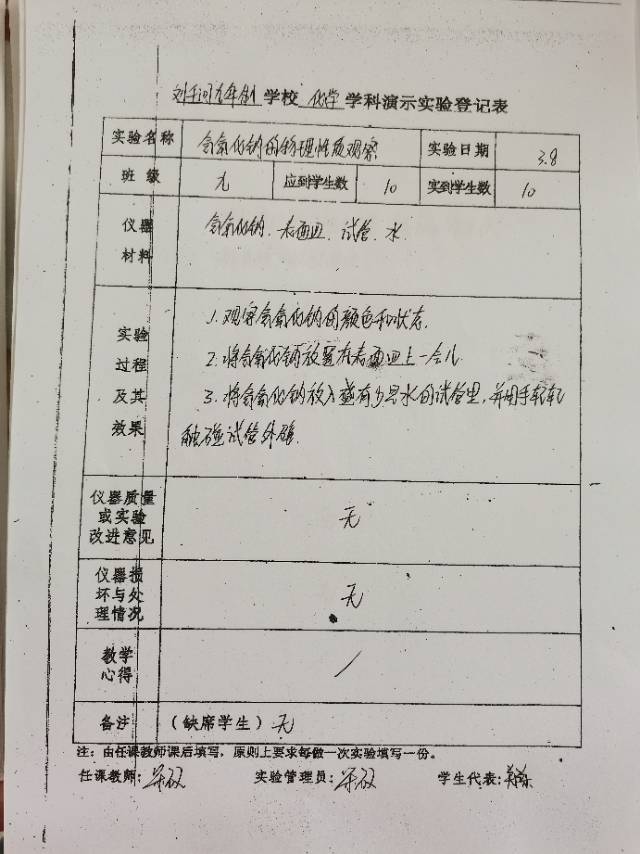 刘千河九年制学校 化学 学科演示实验登记表
实验名称 氢氧化钠的物理性质观察 实验日期 3.8
班级 九 应到学生数 10 实到学生数 10
仪器材料 氢氧化钠、表面皿、试管、水
实验过程及其效果
1. 观察氢氧化钠的颜色和状态.
2. 将氢氧化钠放置在表面皿上一会儿
3. 将氢氧化钠放入盛有少量水的试管里,并用手轻轻
触碰试管外壁.
仪器质量或实验改进意见 无
仪器损坏与处理情况 无
教学心得 /
备注 (缺席学生) 无
注:由任课教师课后填写,原则上要求每做一次实验填写一份。
任课教师: 实验管理员: 学生代表: